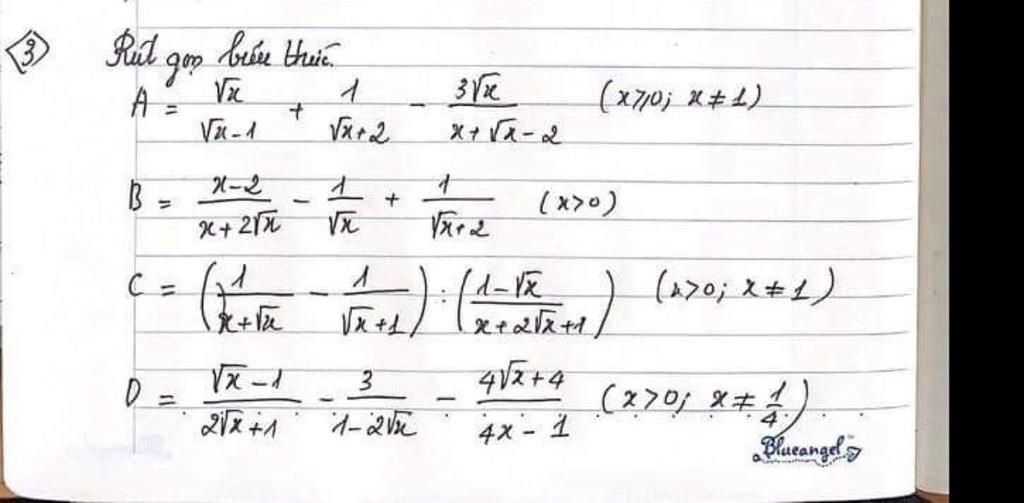 3 Rút gọn biểu thức.
A = √x/(√x-1) + 1/(√x+2) - 3√x/(x+√x-2) (x⩾0; x≠1)
B = (x-2)/(x+2√x) - 1/√x + 1/(√x+2) (x>0)
C = (1/(x+√x) - 1/(√x+1)) : ((1-√x)/(x+2√x+1)) (x>0; x≠1)
D = (√x-1)/(2√x+1) - 3/(1-2√x) - (4√x+4)/(4x-1) (x>0; x≠1/4)
Blueangel